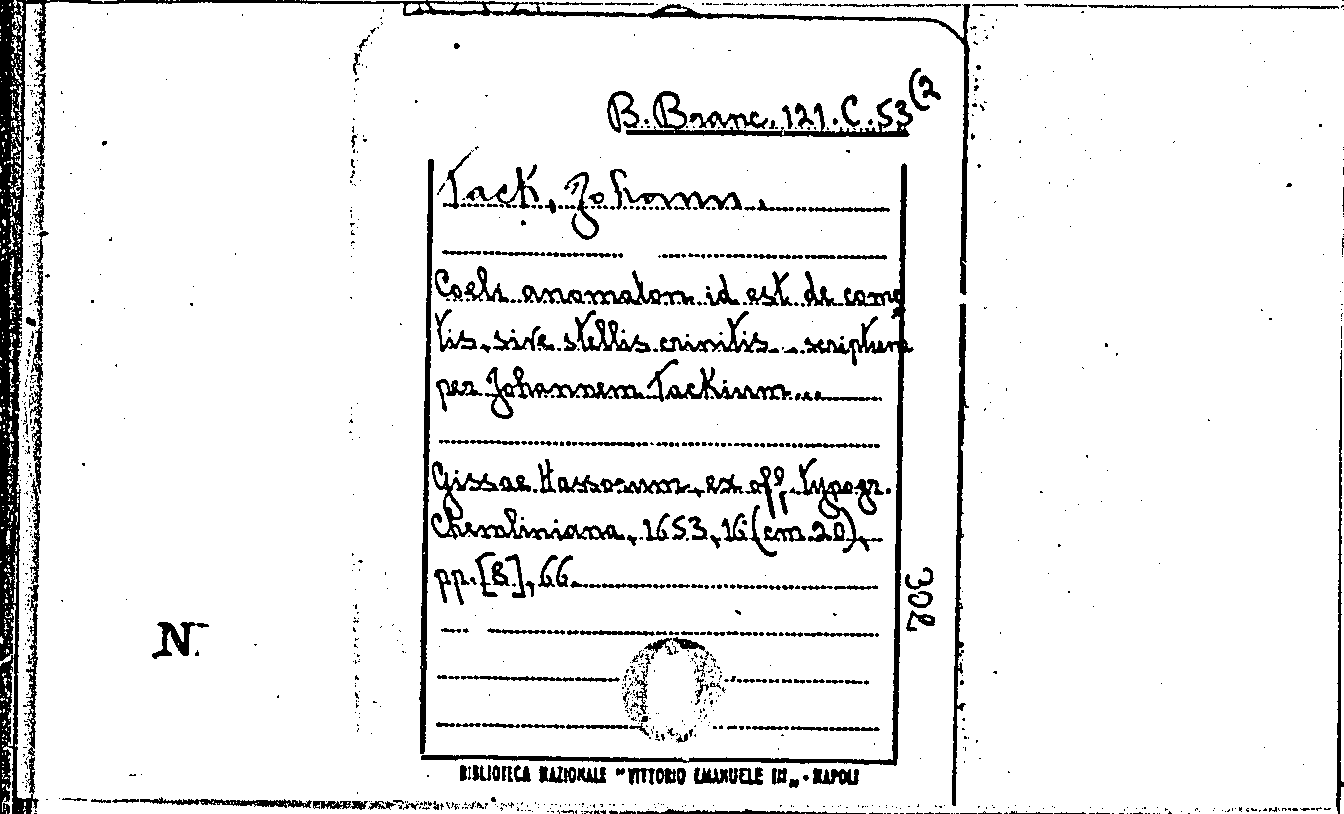 B. Branc. 121. C. 53(2
Tack, Johann.
Coeli anomalon id est de come
tis, sive stellis crinitis... scriptum
per Johannem Tackium...
Gissae Hassorum, ex off. typogr.
Chemliniana, 1653, 16 (cm. 20),
pp. [8], 66
302
N.
BIBLIOTECA NAZIONALE "VITTORIO EMANUELE III„ - NAPOLI